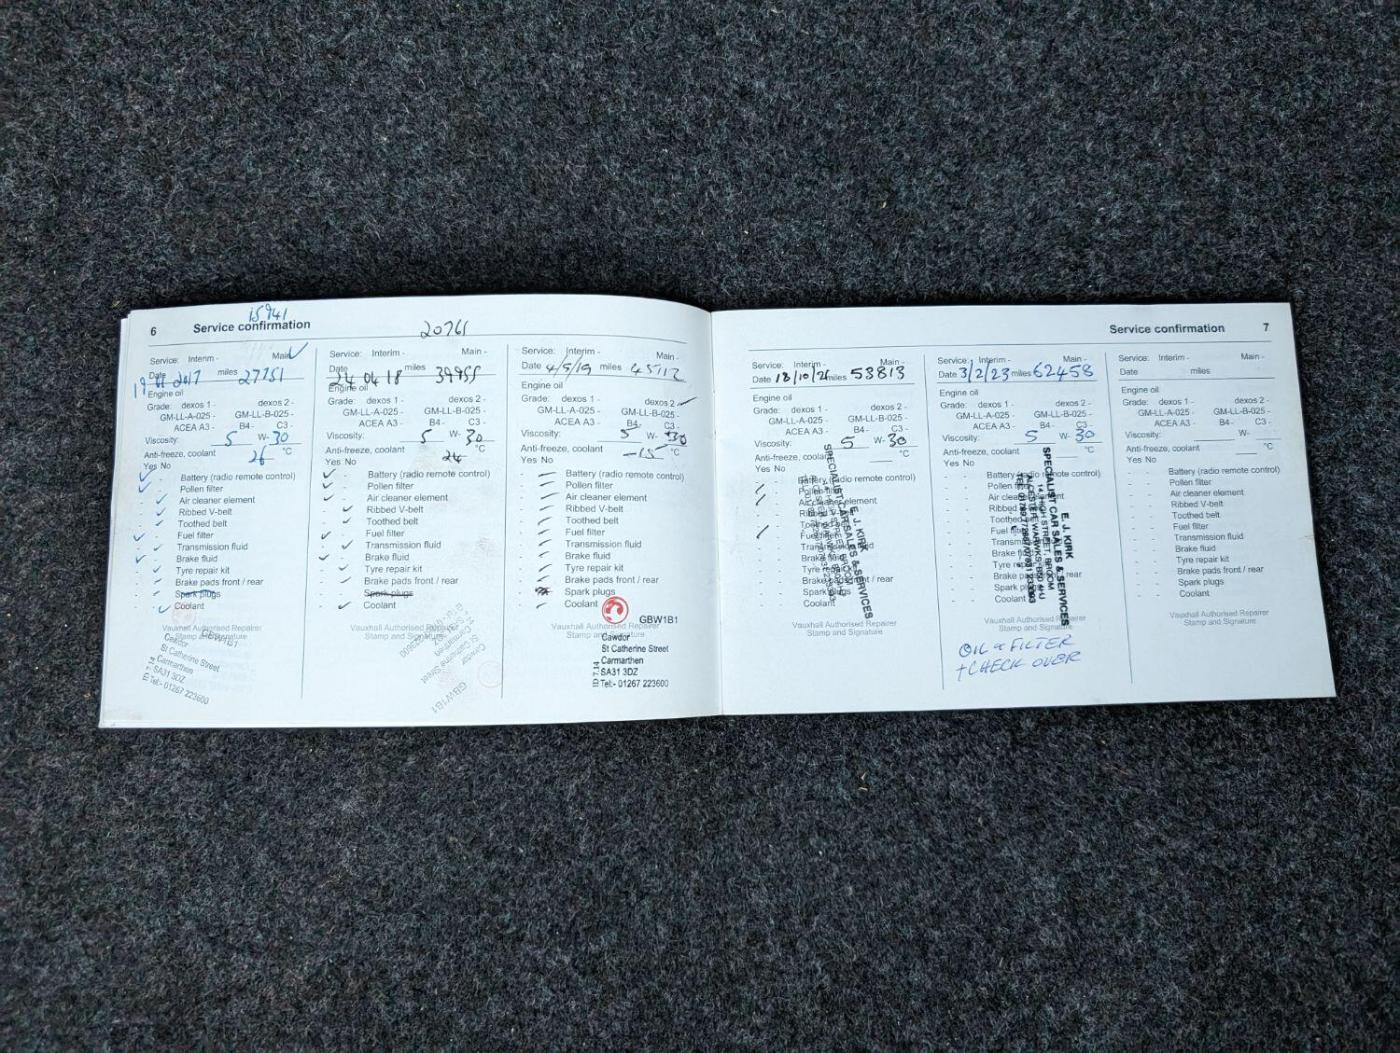 15941
6 Service confirmation
Service: Interim - Main
Date 2017 miles 27751
Engine oil
Grade: dexos 1 - dexos 2 -
GM-LL-A-025 - GM-LL-B-025 -
ACEA A3 - B4 - C3 -
Viscosity: 5 W- 30
Anti-freeze, coolant 26 °C
Yes No
Battery (radio remote control)
Pollen filter
Air cleaner element
Ribbed V-belt
Toothed belt
Fuel filter
Transmission fluid
Brake fluid
Tyre repair kit
Brake pads front / rear
Spark plugs
Coolant
Vauxhall Authorised Repairer
Stamp and Signature
GBW1B1
Cawdor
St Catherine Street
Carmarthen
SA31 3DZ
Tel:- 01267 223600
20761
Service: Interim - Main -
Date 24 04 18 miles 39955
Engine oil
Grade: dexos 1 - dexos 2 -
GM-LL-A-025 - GM-LL-B-025 -
ACEA A3 - B4 - C3 -
Viscosity: 5 W- 30
Anti-freeze, coolant 24 °C
Yes No
Battery (radio remote control)
Pollen filter
Air cleaner element
Ribbed V-belt
Toothed belt
Fuel filter
Transmission fluid
Brake fluid
Tyre repair kit
Brake pads front / rear
Spark plugs
Coolant
Vauxhall Authorised Repairer
Stamp and Signature
GBW1B1
Cawdor
St Catherine Street
Carmarthen
Service: Interim - Main -
Date 4/5/19 miles 45112
Engine oil
Grade: dexos 1 - dexos 2 -
GM-LL-A-025 - GM-LL-B-025 -
ACEA A3 - B4 - C3 -
Viscosity: 5 W- 30
Anti-freeze, coolant -15 °C
Yes No
Battery (radio remote control)
Pollen filter
Air cleaner element
Ribbed V-belt
Toothed belt
Fuel filter
Transmission fluid
Brake fluid
Tyre repair kit
Brake pads front / rear
Spark plugs
Coolant
GBW1B1
Vauxhall Authorised Repairer
Stamp and Signature
Cawdor
St Catherine Street
Carmarthen
SA31 3DZ
Tel:- 01267 223600
ID 7.14
Service confirmation 7
Service: Interim - Main -
Date 18/10/21 miles 53813
Engine oil
Grade: dexos 1 - dexos 2 -
GM-LL-A-025 - GM-LL-B-025 -
ACEA A3 - B4 - C3 -
Viscosity: 5 W- 30
Anti-freeze, coolant °C
Yes No
Battery (radio remote control)
Pollen filter
Air cleaner element
Ribbed V-belt
Toothed belt
Fuel filter
Transmission fluid
Brake fluid
Tyre repair kit
Brake pads front / rear
Spark plugs
Coolant
Vauxhall Authorised Repairer
Stamp and Signature
E. J. KIRK
SPECIALIST CAR SALES & SERVICES
Service: Interim - Main -
Date 3/2/23 miles 62458
Engine oil
Grade: dexos 1 - dexos 2 -
GM-LL-A-025 - GM-LL-B-025 -
ACEA A3 - B4 - C3 -
Viscosity: 5 W- 30
Anti-freeze, coolant °C
Yes No
Battery (radio remote control)
Pollen filter
Air cleaner element
Ribbed V-belt
Toothed belt
Fuel filter
Transmission fluid
Brake fluid
Tyre repair kit
Brake pads front / rear
Spark plugs
Coolant
Vauxhall Authorised Repairer
Stamp and Signature
E. J. KIRK
SPECIALIST CAR SALES & SERVICES
14 HIGH STREET, BROOM
OIL & FILTER
+ CHECK OVER
Service: Interim - Main -
Date miles
Engine oil
Grade: dexos 1 - dexos 2 -
GM-LL-A-025 - GM-LL-B-025 -
ACEA A3 - B4 - C3 -
Viscosity: W-
Anti-freeze, coolant °C
Yes No
Battery (radio remote control)
Pollen filter
Air cleaner element
Ribbed V-belt
Toothed belt
Fuel filter
Transmission fluid
Brake fluid
Tyre repair kit
Brake pads front / rear
Spark plugs
Coolant
Vauxhall Authorised Repairer
Stamp and Signature